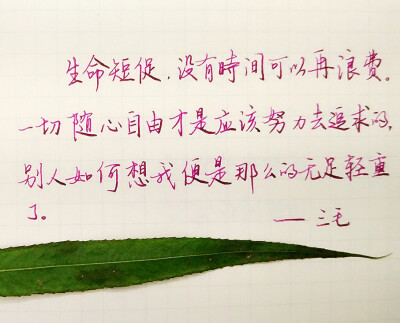 生命短促，没有時间可以再浪费。
一切随心自由才是应该努力去追求的，
别人如何想我便是那么的无足轻重
了。
——三毛